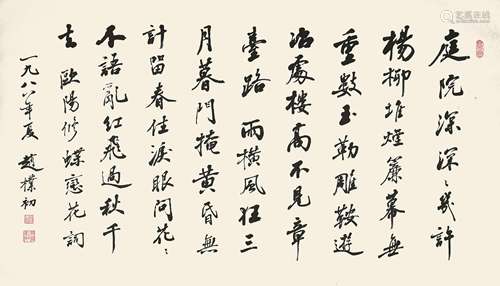 庭院深深〻幾許
楊柳堆煙簾幕無
重數玉勒雕鞍遊
冶處樓高不見章
臺路雨橫風狂三
月暮門掩黃昏無
計留春住淚眼問花〻
不語亂紅飛過秋千
去歐陽修蝶戀花詞
一九八八年夏 趙樸初